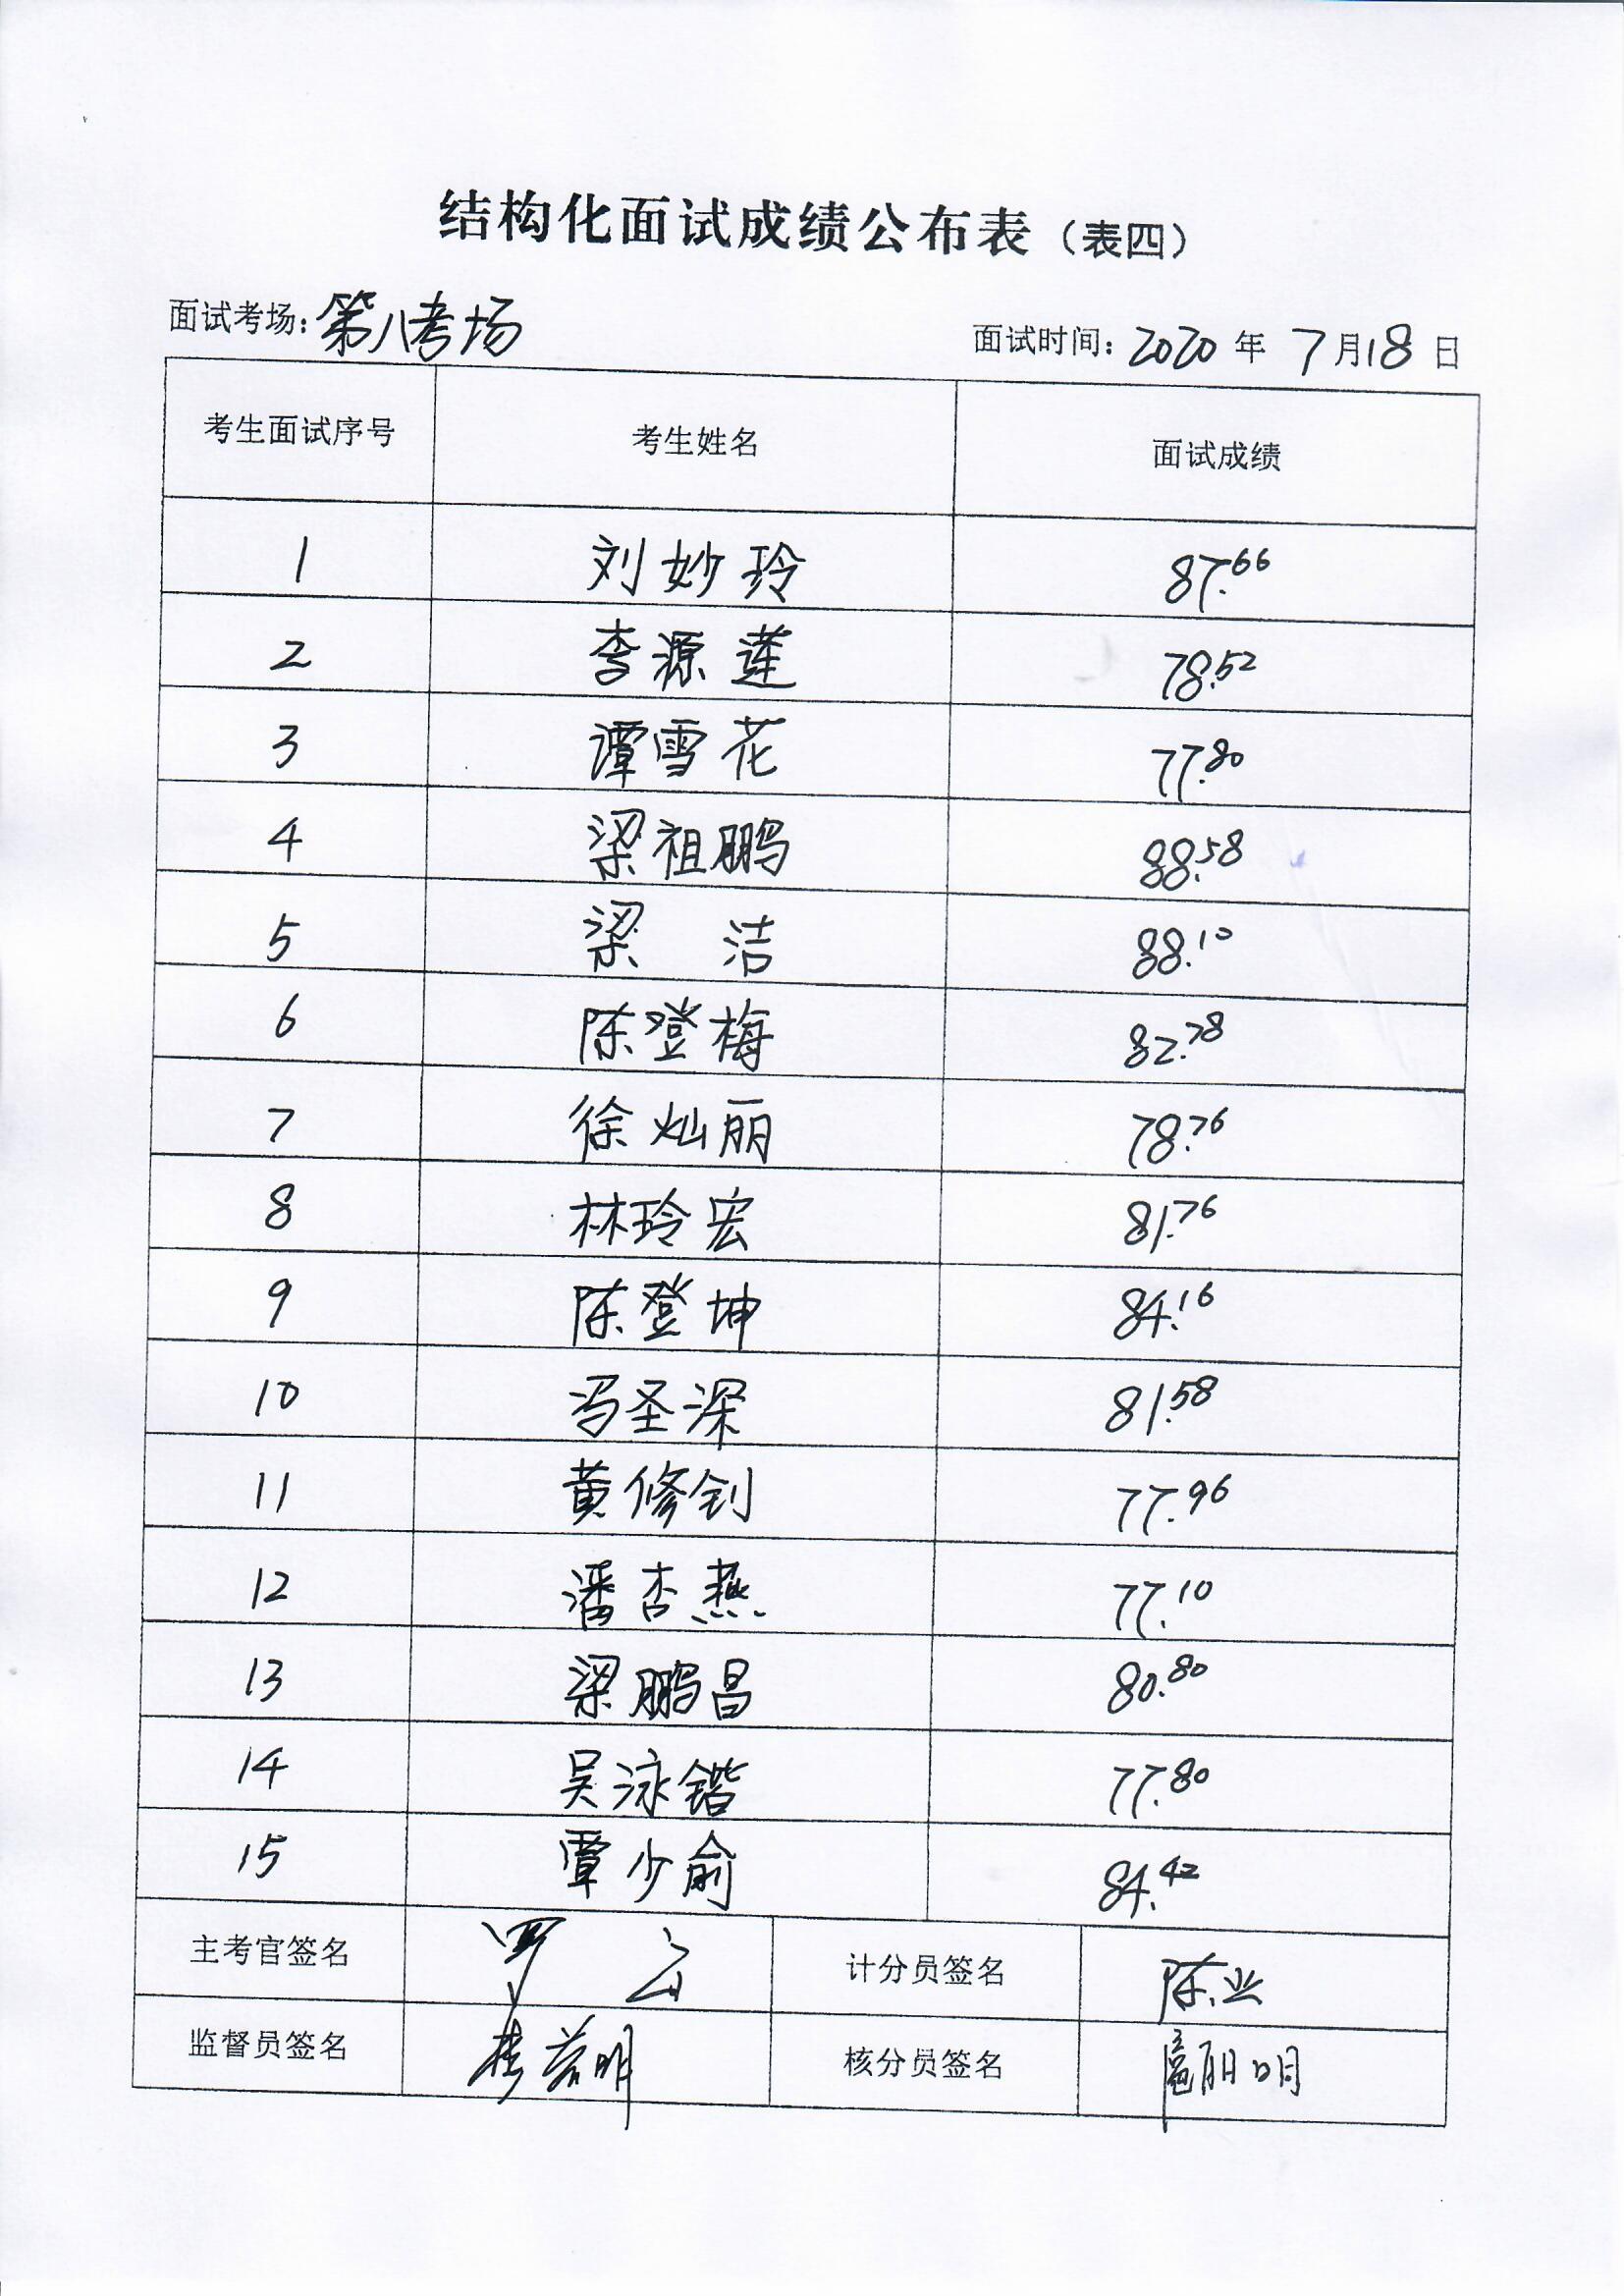 结构化面试成绩公布表（表四）
面试考场：第八考场 面试时间：2020 年 7 月 18 日
考生面试序号 考生姓名 面试成绩
1 刘妙玲 87.66
2 李源莲 78.52
3 谭雪花 77.80
4 梁祖鹏 88.58
5 梁 洁 88.10
6 陈登梅 82.78
7 徐灿丽 78.76
8 林玲宏 81.76
9 陈登坤 84.16
10 冯圣深 81.58
11 黄修钊 77.96
12 潘杏燕 77.10
13 梁鹏昌 80.80
14 吴泳锴 77.80
15 覃少俞 84.42
主考官签名 罗 云 计分员签名 陈业
监督员签名 核分员签名